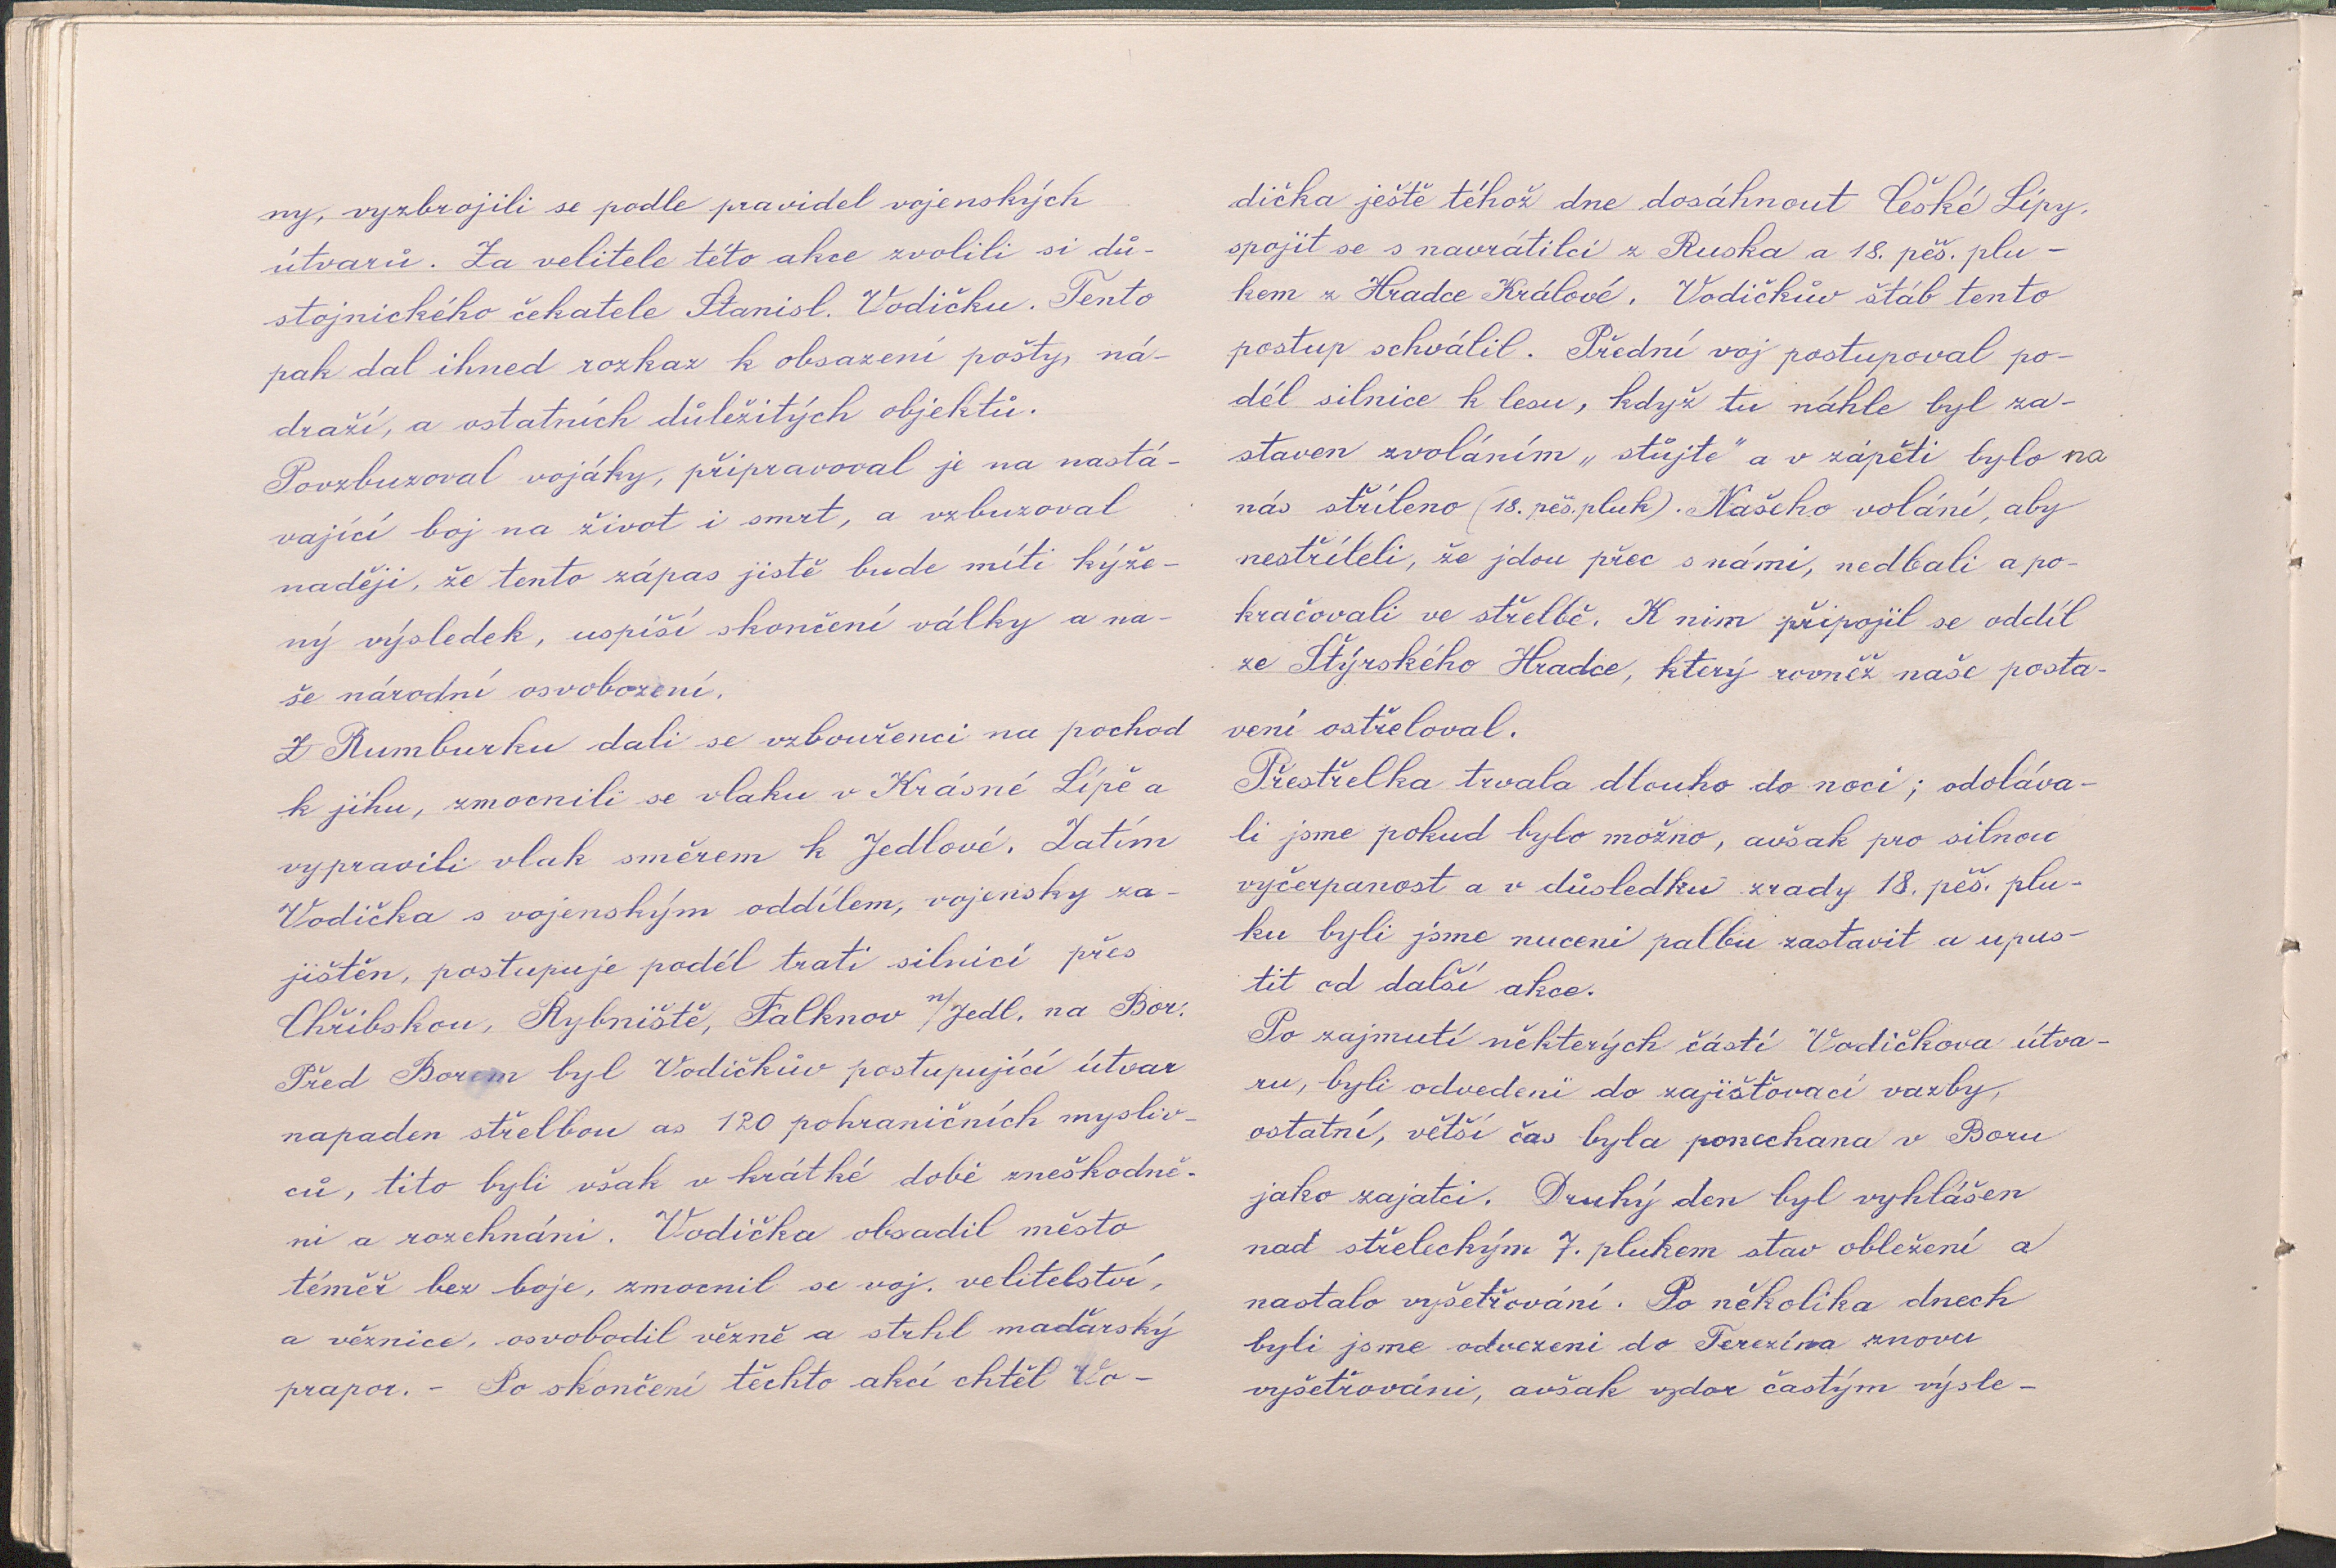 ny, vyzbrojili se podle pravidel vojenských
útvarů. Za velitele této akce zvolili si dů-
stojnického čekatele Stanisl. Vodičku. Tento
pak dal ihned rozkaz k obsazení pošty, ná-
draží, a ostatních důležitých objektů.
Povzbuzoval vojáky, připravoval je na nastá-
vající boj na život i smrt, a vzbuzoval
naději, že tento zápas jistě bude míti kýže-
ný výsledek, uspíší skončení války a na-
še národní osvobození.
Z Rumburku dali se vzbouřenci na pochod
k jihu, zmocnili se vlaku v Krásné Lípě a
vypravili vlak směrem k Jedlové. Zatím
Vodička s vojenským oddílem, vojensky za-
jištěn, postupuje podél trati silnicí přes
Chřibskou, Rybniště, Falknov n/Jedl. na Bor.
Před Borem byl Vodičkův postupující útvar
napaden střelbou as 120 pohraničních mysliv-
ců, tito byli však v krátké době zneškodně-
ni a rozehnáni. Vodička obsadil město
téměř bez boje, zmocnil se voj. velitelství,
a věznice, osvobodil vězně a strhl maďarský
prapor. - Po skončení těchto akcí chtěl Vo-
dička ještě téhož dne dosáhnout České Lípy,
spojit se s navrátilci z Ruska a 18. pěš. plu-
kem z Hradce Králové. Vodičkův štáb tento
postup schválil. Přední voj postupoval po-
dél silnice k lesu, když tu náhle byl za-
staven zvoláním „stůjte" a v zápětí bylo na
nás stříleno (18. pěš. pluk). Našeho volání, aby
nestříleli, že jdou přec s námi, nedbali a po-
kračovali ve střelbě. K nim připojil se oddíl
ze Štýrského Hradce, který rovněž naše posta-
vení ostřeloval.
Přestřelka trvala dlouho do noci; odoláva-
li jsme pokud bylo možno, avšak pro silnou
vyčerpanost a v důsledku zrady 18. pěš. plu-
ku byli jsme nuceni palbu zastavit a upus-
tit od další akce.
Po zajmutí některých částí Vodičkova útva-
ru, byli odvedeni do zajišťovací vazby,
ostatní, větší čas byla ponechana v Boru
jako zajatci. Druhý den byl vyhlášen
nad střeleckým 7. plukem stav obležení a
nastalo vyšetřování. Po několika dnech
byli jsme odvezeni do Terezína znovu
vyšetřováni, avšak vzdor častým výsle-